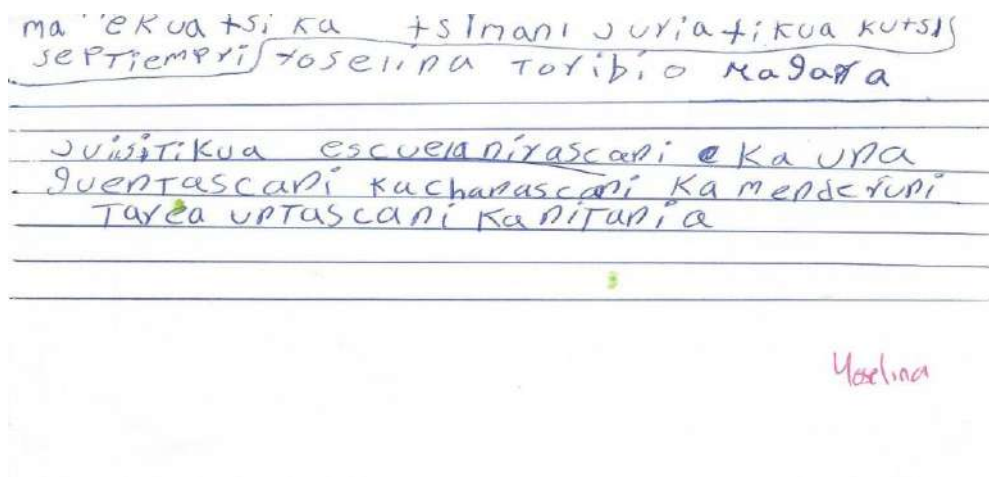 ma ekuatsi ka tsimani juriatikua kutsis
septiempri yoselina Toribio Magaña
juisitikua escuelanirascani e ka una
guentascani kachanascani ka menderuni
Tarea untascani kanitania
Yoselina